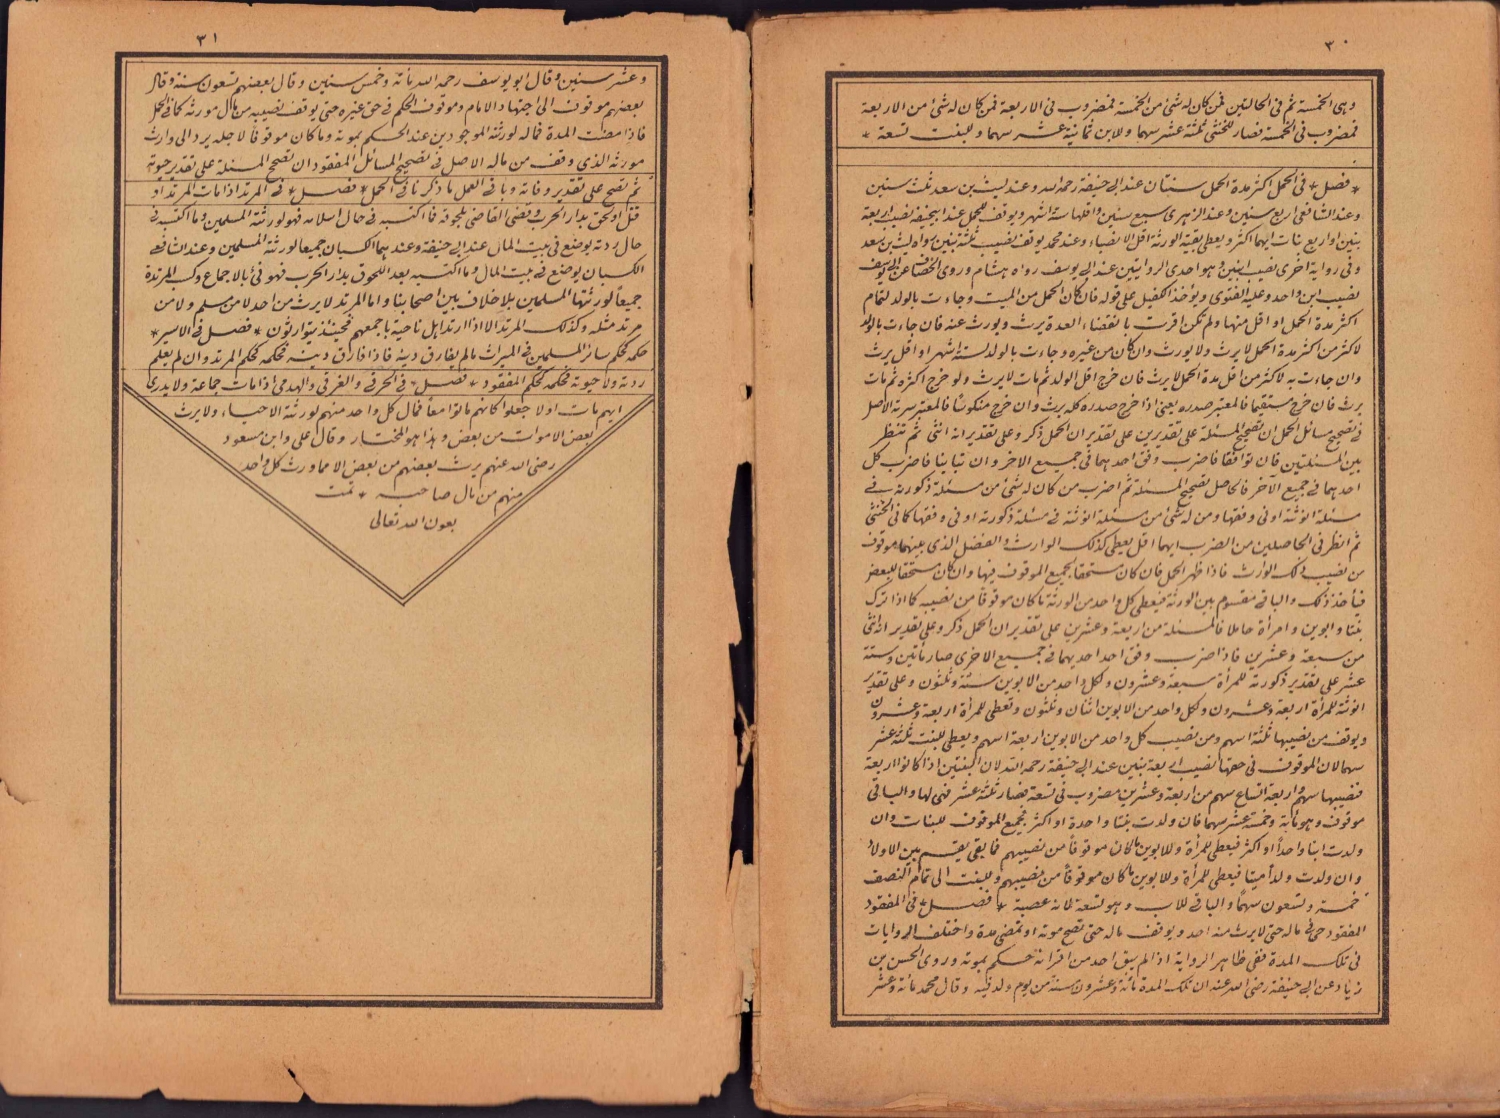 ٣٠
وهى الخمسة ثم فى الحالتين فمن كان له شئ من الخمسة فمضروب فى الاربعة فمن كان له شئ من الاربعة
فمضروب فى الخمسة فصار للخنثى ثلثة عشر سهما وللابن ثمانية عشر سهما وللبنت تسعة *
* فصل * فى الحمل اكثر مدة الحمل سنتان عند ابى حنيفة رحمه الله وعند ليث بن سعد ثلث سنين
وعند الشافعى اربع سنين وعند الزهرى سبع سنين واقلها ستة اشهر ويوقف للحمل عند ابيحنيفة نصيب اربعة
بنين او اربع بنات ايهما اكثر ويعطى بقية الورثة اقل الانصباء وعند محمد يوقف نصيب ثلثة بنين رواه ليث بن سعد
وفى رواية اخرى نصيب ابنين وهو احدى الروايتين عند ابى يوسف رواه هشام وروى الخصاف عن ابى يوسف
نصيب ابن واحد وعليه الفتوى ويؤخذ الكفيل على قوله فان كان الحمل من الميت وجاءت بالولد لتمام
اكثر مدة الحمل او اقل منها ولم تكن اقرت بانقضاء العدة يرث ويورث عنه فان جاءت بالولد
لاكثر من اكثر مدة الحمل لا يرث ولا يورث وان كان من غيره وجاءت بالولد لستة اشهر او اقل يرث
وان جاءت به لاكثر من اقل مدة الحمل لا يرث فان خرج اقل الولد ثم مات لا يرث ولو خرج اكثره ثم مات
يرث فان خرج مستقيما فالمعتبر صدره يعنى اذا خرج صدره كله يرث وان خرج منكوسا فالمعتبر سرته الاصل
فى تصحيح مسائل الحمل ان تصحح المسئلة على تقديرين على تقدير ان الحمل ذكر وعلى تقدير انه انثى ثم تنظر
بين المسئلتين فان توافقا فاضرب وفق احدهما فى جميع الاخر وان تباينا فاضرب كل
احدهما فى جميع الآخر فالحاصل تصحيح المسئلة ثم اضرب من كان له شئ من مسئلة ذكورته فى
مسئلة انوثته او فى وفقها ومن له شئ من مسئلة انوثته فى مسئلة ذكورته او فى وفقها كما فى الخنثى
ثم انظر فى الحاصلين من الضرب ايهما اقل يعطى كذلك الوارث والفضل الذى بينهما موقوف
من نصيب ذلك الوارث فاذا ظهر الحمل فان كان مستحقا لجميع الموقوف فبها وان كان مستحقا للبعض
فيأخذ ذلك والباقى مقسوم بين الورثة فيعطى كل واحد من الورثة ما كان موقوفا من نصيبه كما اذا ترك
بنتا وابوين وامرأة حاملا فالمسئلة من اربعة وعشرين على تقدير ان الحمل ذكر وعلى تقدير انه انثى
من سبعة وعشرين فاذا ضرب وفق احد احديهما فى جميع الاخرى صار مأتين وستة
عشر على تقدير ذكورته للمرأة سبعة وعشرون ولكل واحد من الابوين ستة وثلثون وعلى تقدير
انوثته للمرأة اربعة وعشرون ولكل واحد من الابوين اثنان وثلثون وتعطى للمرأة اربعة وعشرون
ويوقف من نصيبها ثلثة اسهم ومن نصيب كل واحد من الابوين اربعة اسهم ويعطى للبنت ثلثة عشر
سهما لان الموقوف فى حقها نصيب اربعة بنين عند ابى حنيفة رحمه الله لان البنتين اذا كانوا اربعة
فنصيبها سهم واربعة اتساع سهم من اربعة وعشرين مضروب فى تسعة فصار ثلثة عشر فهى لها والباقى
موقوف وهو مائة وخمسة عشر سهما فان ولدت بنتا واحدة او اكثر فجميع الموقوف للبنات وان
ولدت ابنا واحدا او اكثر فيعطى للمرأة وللابوين ما كان موقوفا من نصيبهم فما بقى يقسم بين الاولاد
وان ولدت ولدا ميتا فيعطى للمرأة وللابوين ما كان موقوفا من نصيبهم وللبنت الى تمام النصف
خمسة وتسعون سهما والباقى للاب وهو تسعة لانه عصبة * فصل * فى المفقود
المفقود حى فى ماله حتى لا يرث منه احد ويوقف ماله حتى تصح موته او تمضى مدة واختلف الروايات
فى تلك المدة ففى ظاهر الرواية اذا لم يبق احد من اقرانه حكم بموته وروى الحسن بن
زياد عن ابى حنيفة رضى الله عنه ان تلك المدة مائة وعشرون سنة من يوم ولد فيه وقال محمد مائة وعشر
٣١
وعشر سنين وقال ابو يوسف رحمه الله مائة وخمس سنين وقال بعضهم تسعون سنة وقال
بعضهم موقوف الى اجتهاد الامام وموقوف الحكم فى حق غيره حتى يوقف نصيبه من مال مورثه كما فى الحمل
فاذا مضت المدة فماله لورثته الموجودين عند الحكم بموته وما كان موقوفا لاجله يرد الى وارث
مورثه الذى وقف من ماله الاصل فى تصحيح المسائل المفقود ان تصحح المسئلة على تقدير حيوته
ثم تصحح على تقدير وفاته وباقى العمل ما ذكرنا فى الحمل * فصل * فى المرتد اذا مات المرتد او
قتل او لحق بدار الحرب وقضى القاضى بلحوقه فما اكتسبه فى حال اسلامه فهو لورثته المسلمين وما اكتسبه فى
حال ردته يوضع فى بيت المال عند ابى حنيفة وعندهما الكسبان جميعا لورثته المسلمين وعند الشافعى
الكسبان يوضع فى بيت المال وما اكتسبه بعد اللحوق بدار الحرب فهو فئ بالاجماع وكسب المرتدة
جميعا لورثتها المسلمين بلا خلاف بين اصحابنا واما المرتد لا يرث من احد لا من مسلم ولا من
مرتد مثله وكذلك المرتد الا اذا ارتد اهل ناحية باجمعهم فحينئذ يتوارثون * فصل فى الاسير *
حكمه كحكم سائر المسلمين فى الميراث ما لم يفارق دينه فاذا فارق دينه فحكمه كحكم المرتد وان لم يعلم
ردته ولا حيوته فحكمه كحكم المفقود * فصل * فى الحرقى والغرقى والهدمى اذا مات جماعة ولا يدرى
ايهم مات اولا جعلوا كانهم ماتوا معا فمال كل واحد منهم لورثته الاحياء ولا يرث
بعض الاموات من بعض وهذا هو المختار وقال على وابن مسعود
رضى الله عنهم يرث بعضهم من بعض الا مما ورث كل واحد
منهم من مال صاحبه * تمت
بعون الله تعالى